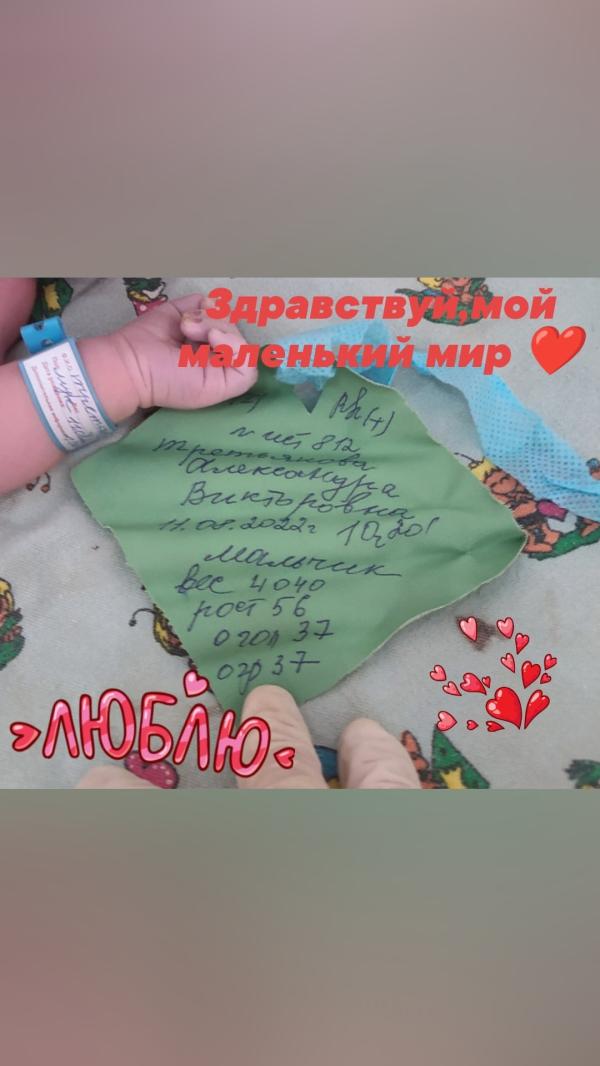 Здравствуй,мой
маленький мир ❤️
Rh(+)
N ист 812
Третьякова
Александра
Викторовна
11.08.2022г 10 30
мальчик
вес 4040
рост 56
о гол 37
о гр 37
ЛЮБЛЮ